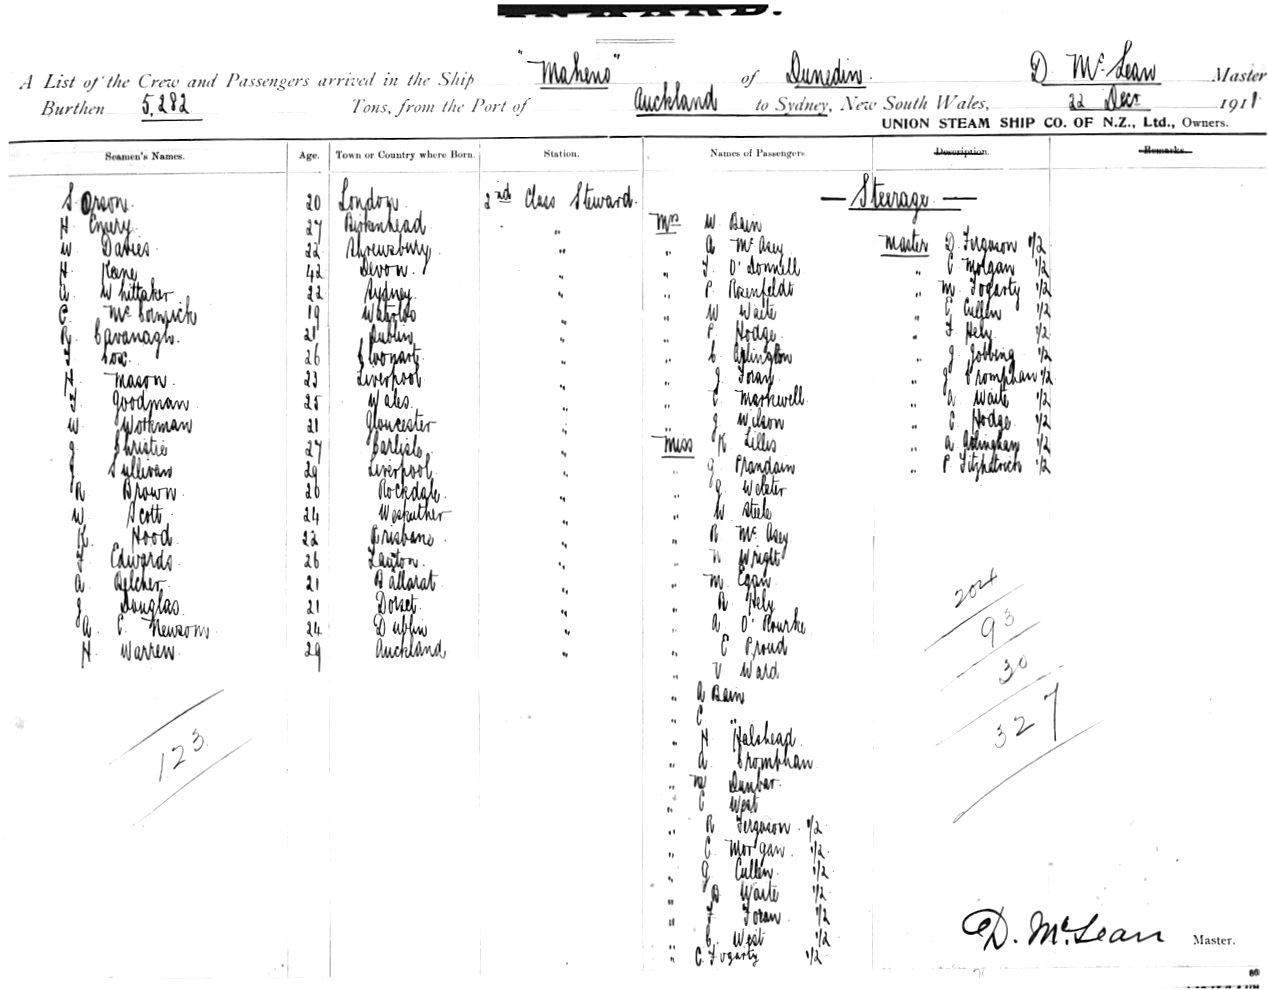 INWARD.
A List of the Crew and Passengers arrived in the Ship "Maheno" of Dunedin. D McLean Master
Burthen 5,282 Tons, from the Port of Auckland to Sydney, New South Wales, 22 Decr 1911
UNION STEAM SHIP CO. OF N.Z., Ltd., Owners.
Seamen's Names. Age. Town or Country where Born. Station. Names of Passengers. Description. Remarks.
S Orson 20 London 2nd Class Steward.
H Emery 27 Birkenhead "
W Davies 22 Shrewsbury "
H Kane 42 Devon "
A Whittaker 22 Sydney "
C McCormick 19 "
R Cavanagh 21 Dublin "
F Cox 26 "
H Mason 23 Liverpool "
F Goodman 25 Wales "
W Workman 21 Gloucester "
J Christie 27 Carlisle "
J Sullivan 29 Liverpool "
R Brown 20 Rockdale "
W Scott 24 "
K Hood 22 Brisbane "
F Edwards 26 "
A Belcher 21 Ballarat "
J Douglas 21 Dorset "
A C Newsom 24 Dublin "
H Warren 29 Auckland "
123
— Steerage —
Mrs W Bain
" A McAsey
" F O'Donnell
" P Rosenfeldt
" W Waite
" P Hodge
" C Arlington
" J Foran
" C Markwell
" J Wilson
Miss K Lilles
" G
" G Webster
" W Steele
" R McAsey
" N Wright
" M Egan
" R Hely
" A O'Rourke
" E Proud
" V Ward
" A Bain
" C "
" H Halshead
" A Cromphan
" M Dunbar
" C West
" R Ferguson 1/2
" C Morgan 1/2
" G Cullen 1/2
" D Waite 1/2
" F Foran 1/2
" C West 1/2
" C Fogarty 1/2
Master D Ferguson 1/2
" C Morgan 1/2
" M Fogarty 1/2
" C Cullen 1/2
" F Hely 1/2
" J Jobbing 1/2
" J Cromphan 1/2
" A Waite 1/2
" C Hodge 1/2
" A 1/2
" P Fitzpatrick 1/2
204
93
30
327
D. McLean Master.
80